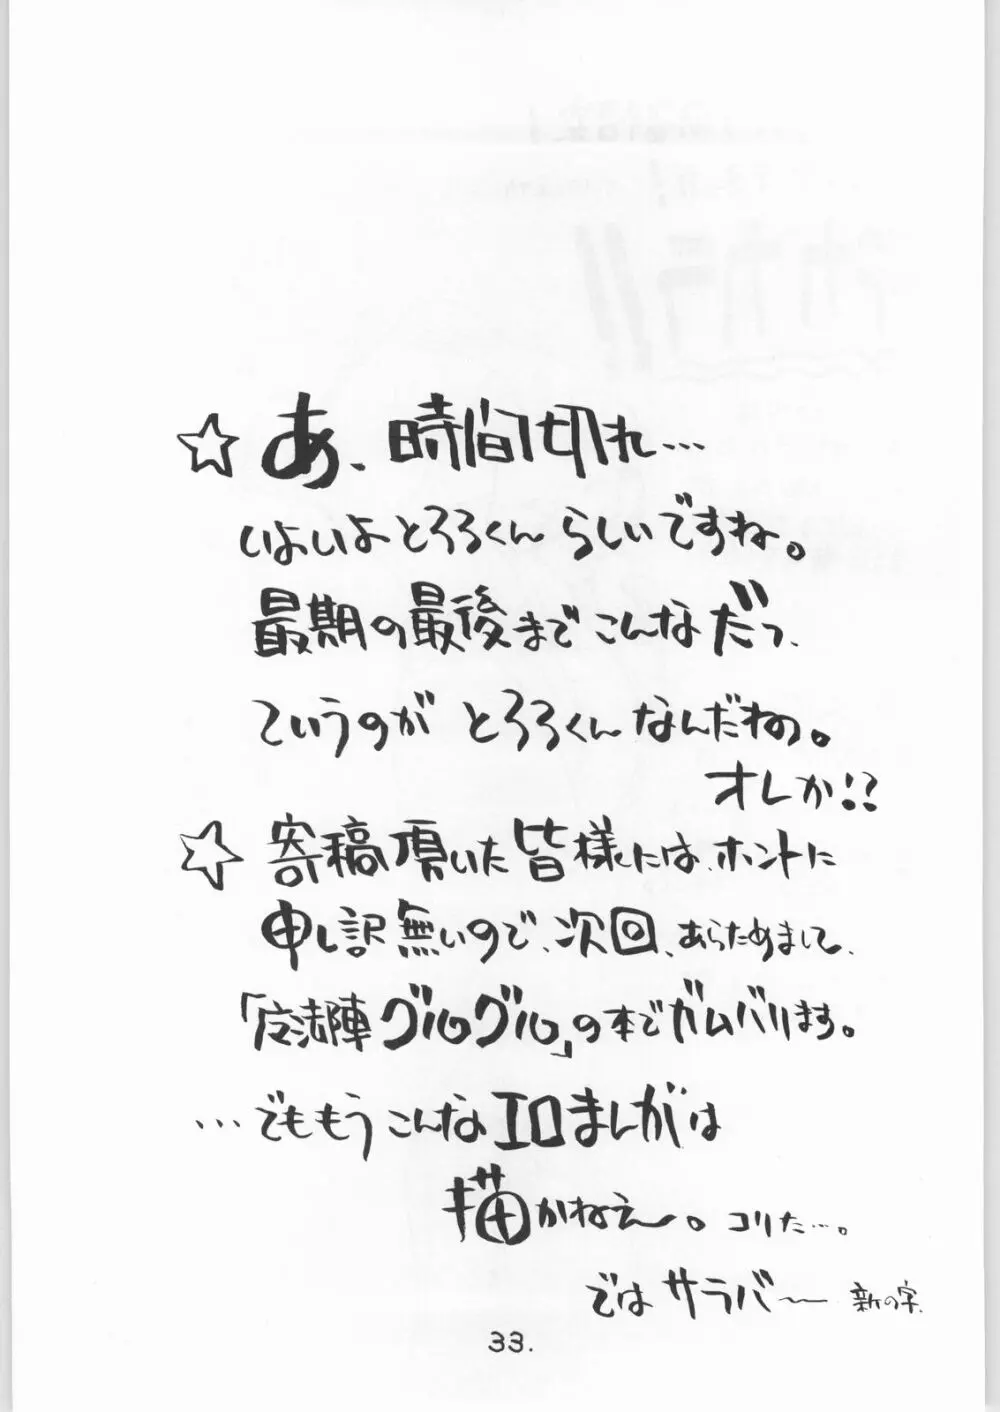 ☆あ、時間切れ…
いよいよとろろくんらしいですね。
最期の最後までこんなだっ、
ていうのがとろろくんなんだねの。
オレか!?
☆寄稿頂いた皆様には、ホントに
申し訳無いので、次回、あらためまして、
「魔法陣グルグル」の本でガムバります。
…でももうこんなエロまんがは
描かねえ〜。コリた…。
ではサラバ〜 新の字.
33.